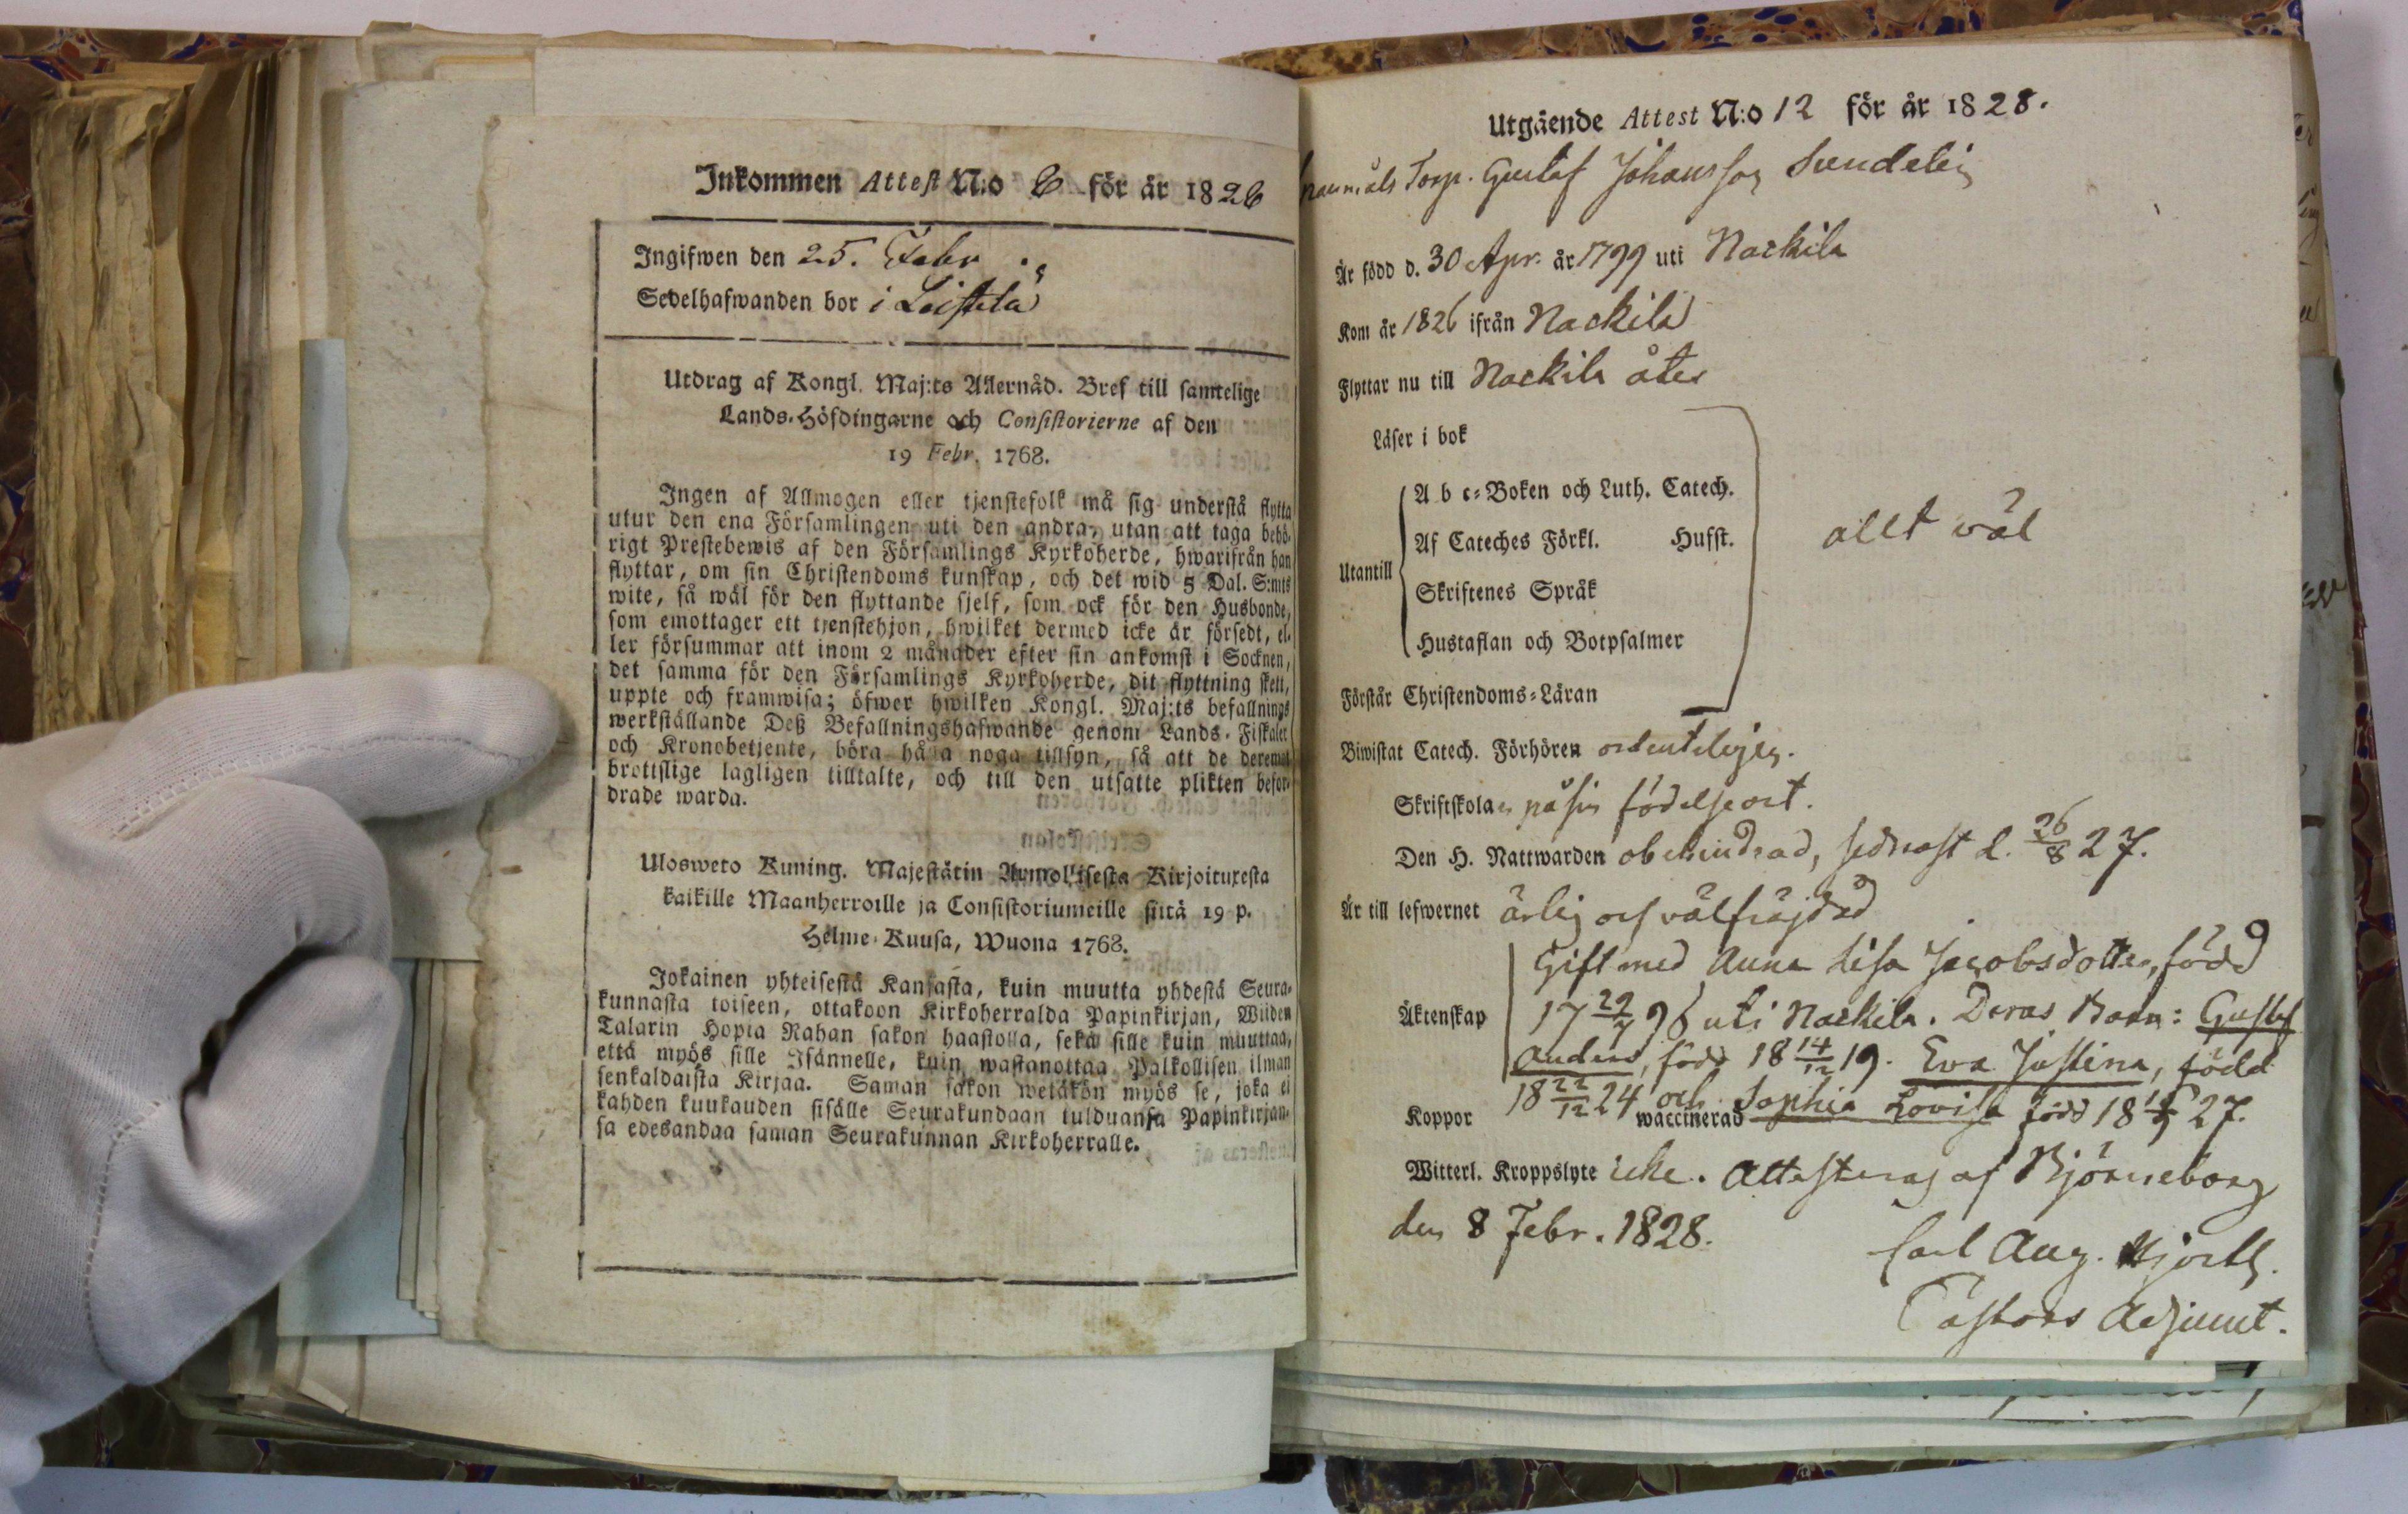 Inkommen Attest N:o 6 för år 1826
Ingifwen den 25. Febr
Sedelhafwanden bor i Leistilä
Utdrag af Kongl. Maj:ts Allernåd. Bref till samtelige
Lands-Höfdingarne och Consistorierne af den
19 Febr. 1768.
Ingen af Allmogen eller tjenstefolk må sig understå flytta
utur den ena Församlingen uti den andra, utan att taga behö-
rigt Prestebewis af den Församlings Kyrkoherde, hwarifrån han
flyttar, om sin Christendoms kunskap, och det wid 5 Dal. S:mts
wite, så wäl för den flyttande sjelf, som ock för den Husbonde,
som emottager ett tjenstehjon, hwilket dermed icke är försedt, el-
ler försummar att inom 2 månader efter sin ankomst i Socknen,
det samma för den Församlings Kyrkoherde, dit flyttning skett,
uppte och framwisa; öfwer hwilken Kongl. Maj:ts befallnings
werkställande Deß Befallningshafwande genom Lands-Fiskaler
och Kronobetjente, böra hålla noga tillsyn, så att de deremot
brottslige lagligen tilltalte, och till den utsatte plikten befor-
drade warda.
Ulosweto Kuning. Majestätin Armollisesta Kirjoituxesta
kaikille Maanherroille ja Consistoriumeille siitä 19 p.
Helme-Kuusa, Wuona 1768.
Jokainen yhteisestä Kansasta, kuin muutta yhdestä Seura-
kunnasta toiseen, ottakoon Kirkoherralda Papinkirjan, Wiiden
Talarin Hopia Rahan sakon haastolla, sekä sille kuin muuttaa,
että myös sille Isännelle, kuin wastanottaa Palkollisen ilman
senkaldaista Kirjaa. Saman sakon wetäkön myös se, joka ei
kahden kuukauden sisälle Seurakundaan tulduansa Papinkirjan-
sa edesandaa saman Seurakunnan Kirkoherralle.
Utgående Attest N:o 12 för år 1828.
Torp. Gustaf Johansson Sundelin
Är född d. 30 Apr. år 1799 uti Nackila
Kom år 1826 ifrån Nackila
Flyttar nu till Nackila åter
Läser i bok
A b c-Boken och Luth. Catech.
Af Cateches Förkl. Hufst.
allt wäl
Utantill
Skriftenes Språk
Hustaflan och Botpsalmer
Förstår Christendoms-Läran
Biwistat Catech. Förhören ordenteligen.
Skriftskolan på sin födelseort.
Den H. Nattwarden obehindrad, sednast d. 26/8 27.
Är till lefwernet ärlig och välfräjdad
Gift med Anna Lisa Jacobsdotter, född
Äktenskap 17 29/7 96 uti Nackila. Deras Barn: Gustaf
Anders, född 18 14/12 19. Eva Justina, född
18 22/12 24 och Sophia Lovisa född 18 27.
Koppor waccinerad
Witterl. Kroppslyte icke. Attesteras af Björneborg
den 8 Febr. 1828.
Carl Aug. Hjorth.
Pastors Adjunct.